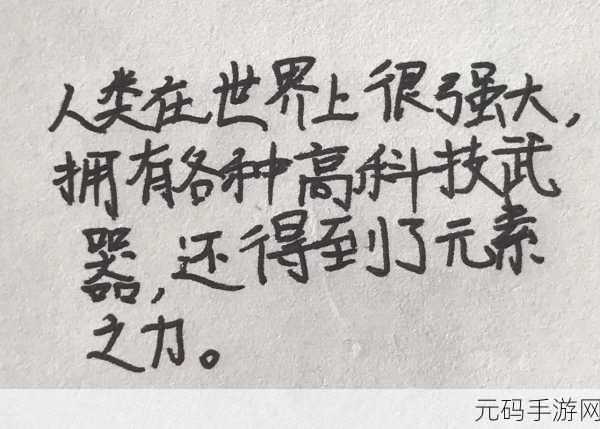 人类在世界上很强大,
拥有各种高科技武
器,还得到了元素
之力。
元码手游网